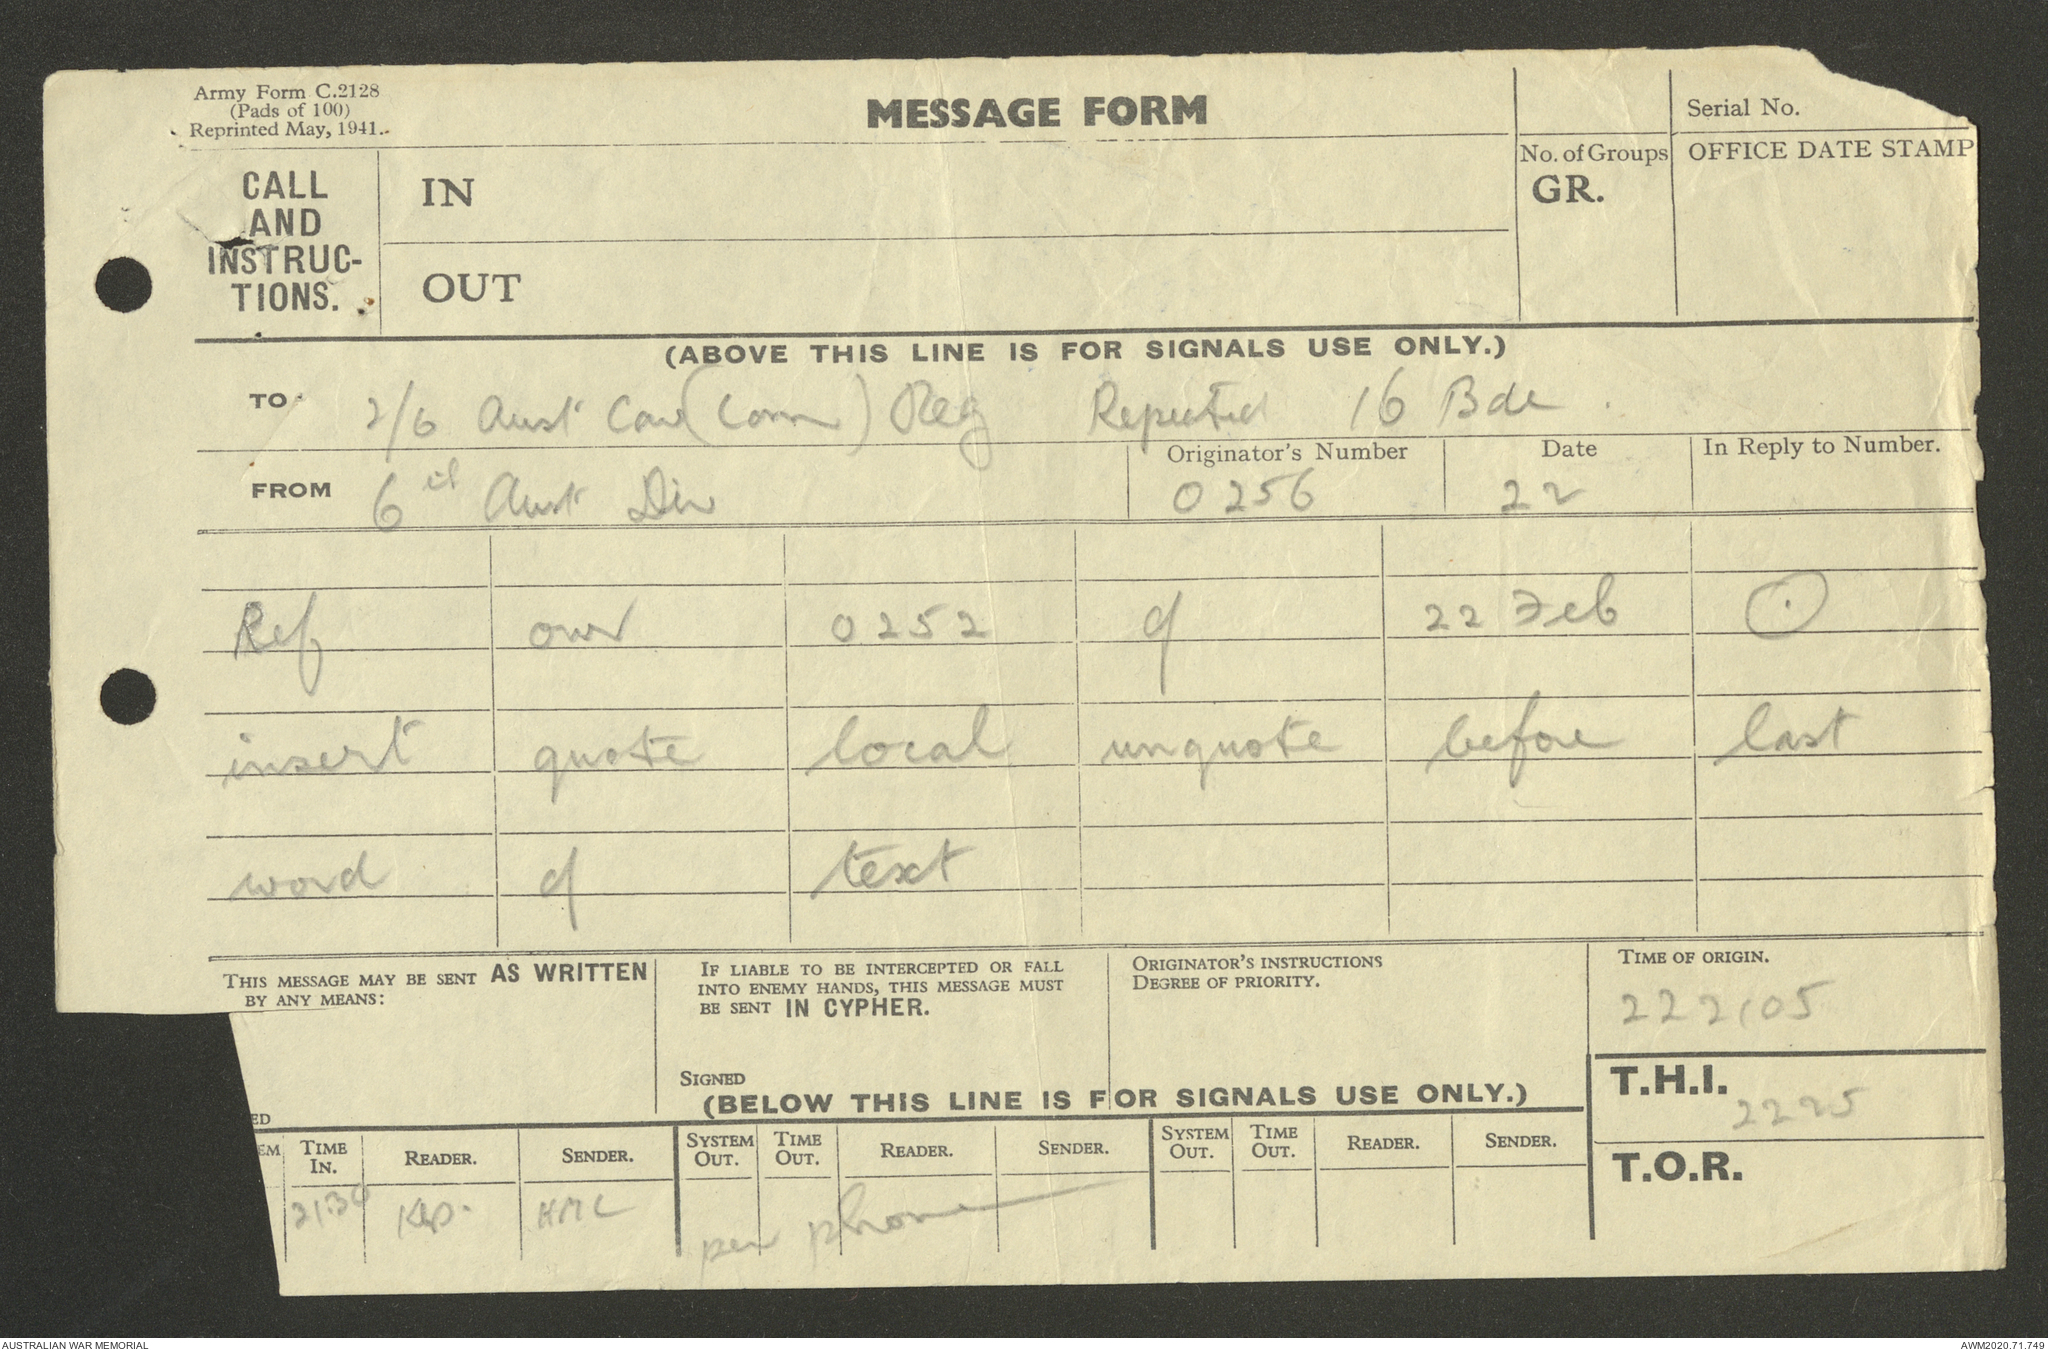 Army Form C.2128
(Pads of 100)
Reprinted May, 1941.
MESSAGE FORM
Serial No.
CALL AND INSTRUC-TIONS.
IN
No. of Groups
GR.
OFFICE DATE STAMP
OUT
(ABOVE THIS LINE IS FOR SIGNALS USE ONLY.)
TO 2/6 Aust Cav (Comm) Reg Repeated 16 Bde .
FROM 6th Aust Div
Originator's Number 0256
Date 22
In Reply to Number.
Ref our 0252 of 22 Feb ⊙
insert quote local unquote before last
word of text
THIS MESSAGE MAY BE SENT AS WRITTEN
BY ANY MEANS:
IF LIABLE TO BE INTERCEPTED OR FALL
INTO ENEMY HANDS, THIS MESSAGE MUST
BE SENT IN CYPHER.
ORIGINATOR'S INSTRUCTIONS
DEGREE OF PRIORITY.
TIME OF ORIGIN.
222105
SIGNED
ED
(BELOW THIS LINE IS FOR SIGNALS USE ONLY.)
T.H.I. 2225
EM TIME IN. READER. SENDER. SYSTEM OUT. TIME OUT. READER. SENDER. SYSTEM OUT. TIME OUT. READER. SENDER.
T.O.R.
2130 HMC per phone
AUSTRALIAN WAR MEMORIAL
AWM2020.71.749